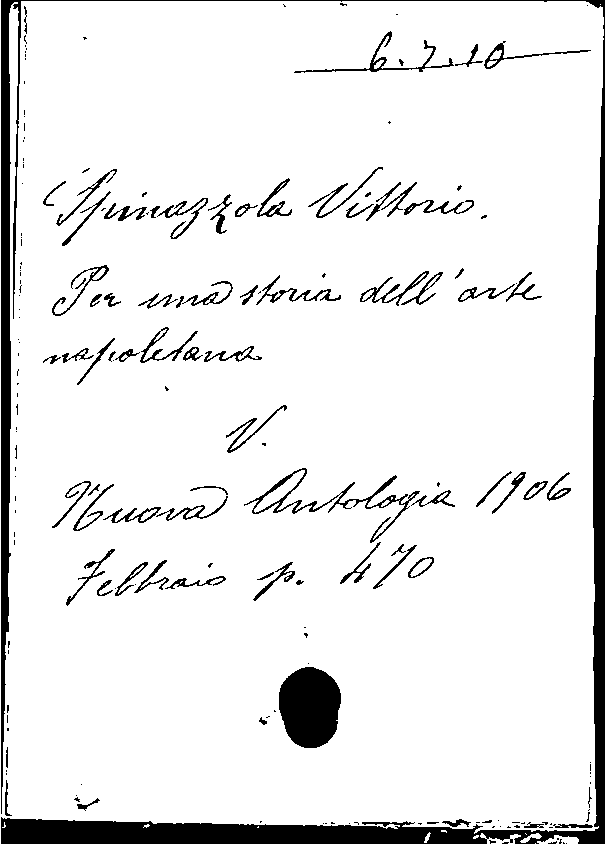 6.7.10
Spinazzola Vittorio.
Per una storia dell'arte
napoletana
V.
Nuova Antologia 1906
Febbraio p. 470